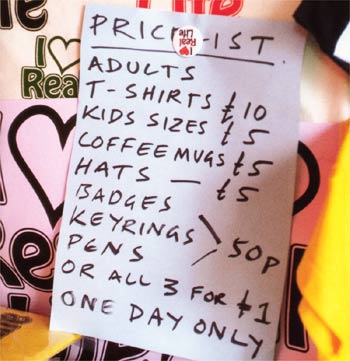 Life
I ♥
Real
PRIC LIST
I ♥ Real Life
ADULTS
T-SHIRTS £10
KIDS SIZES £5
COFFEE MUGS £5
HATS — £5
BADGES
KEYRINGS > 50p
PENS
OR ALL 3 FOR £1
ONE DAY ONLY